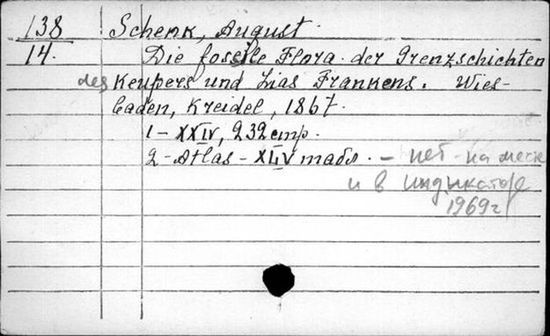 138 Schenk, August.
14. Die fossile Flora der Grenzschichten
des Keupers und Lias Frankens. Wies-
baden, Kreidel, 1867.
1-XXIV, 232 стр.
2-Atlas-XLV табл. - нет на месте
и в индикаторе
1969г